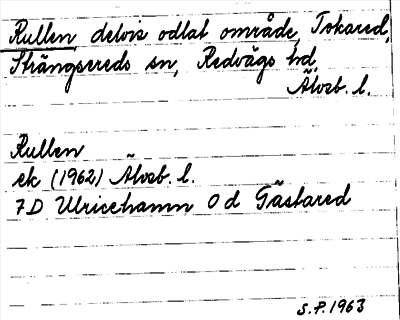 Rullen, delvis odlat område, Tokared,
Strängsereds sn, Redvägs hd,
Älvsb. l.
Rullen
ek (1962) Älvsb. l.
7D Ulricehamn 0d Gästared
S.P. 1963